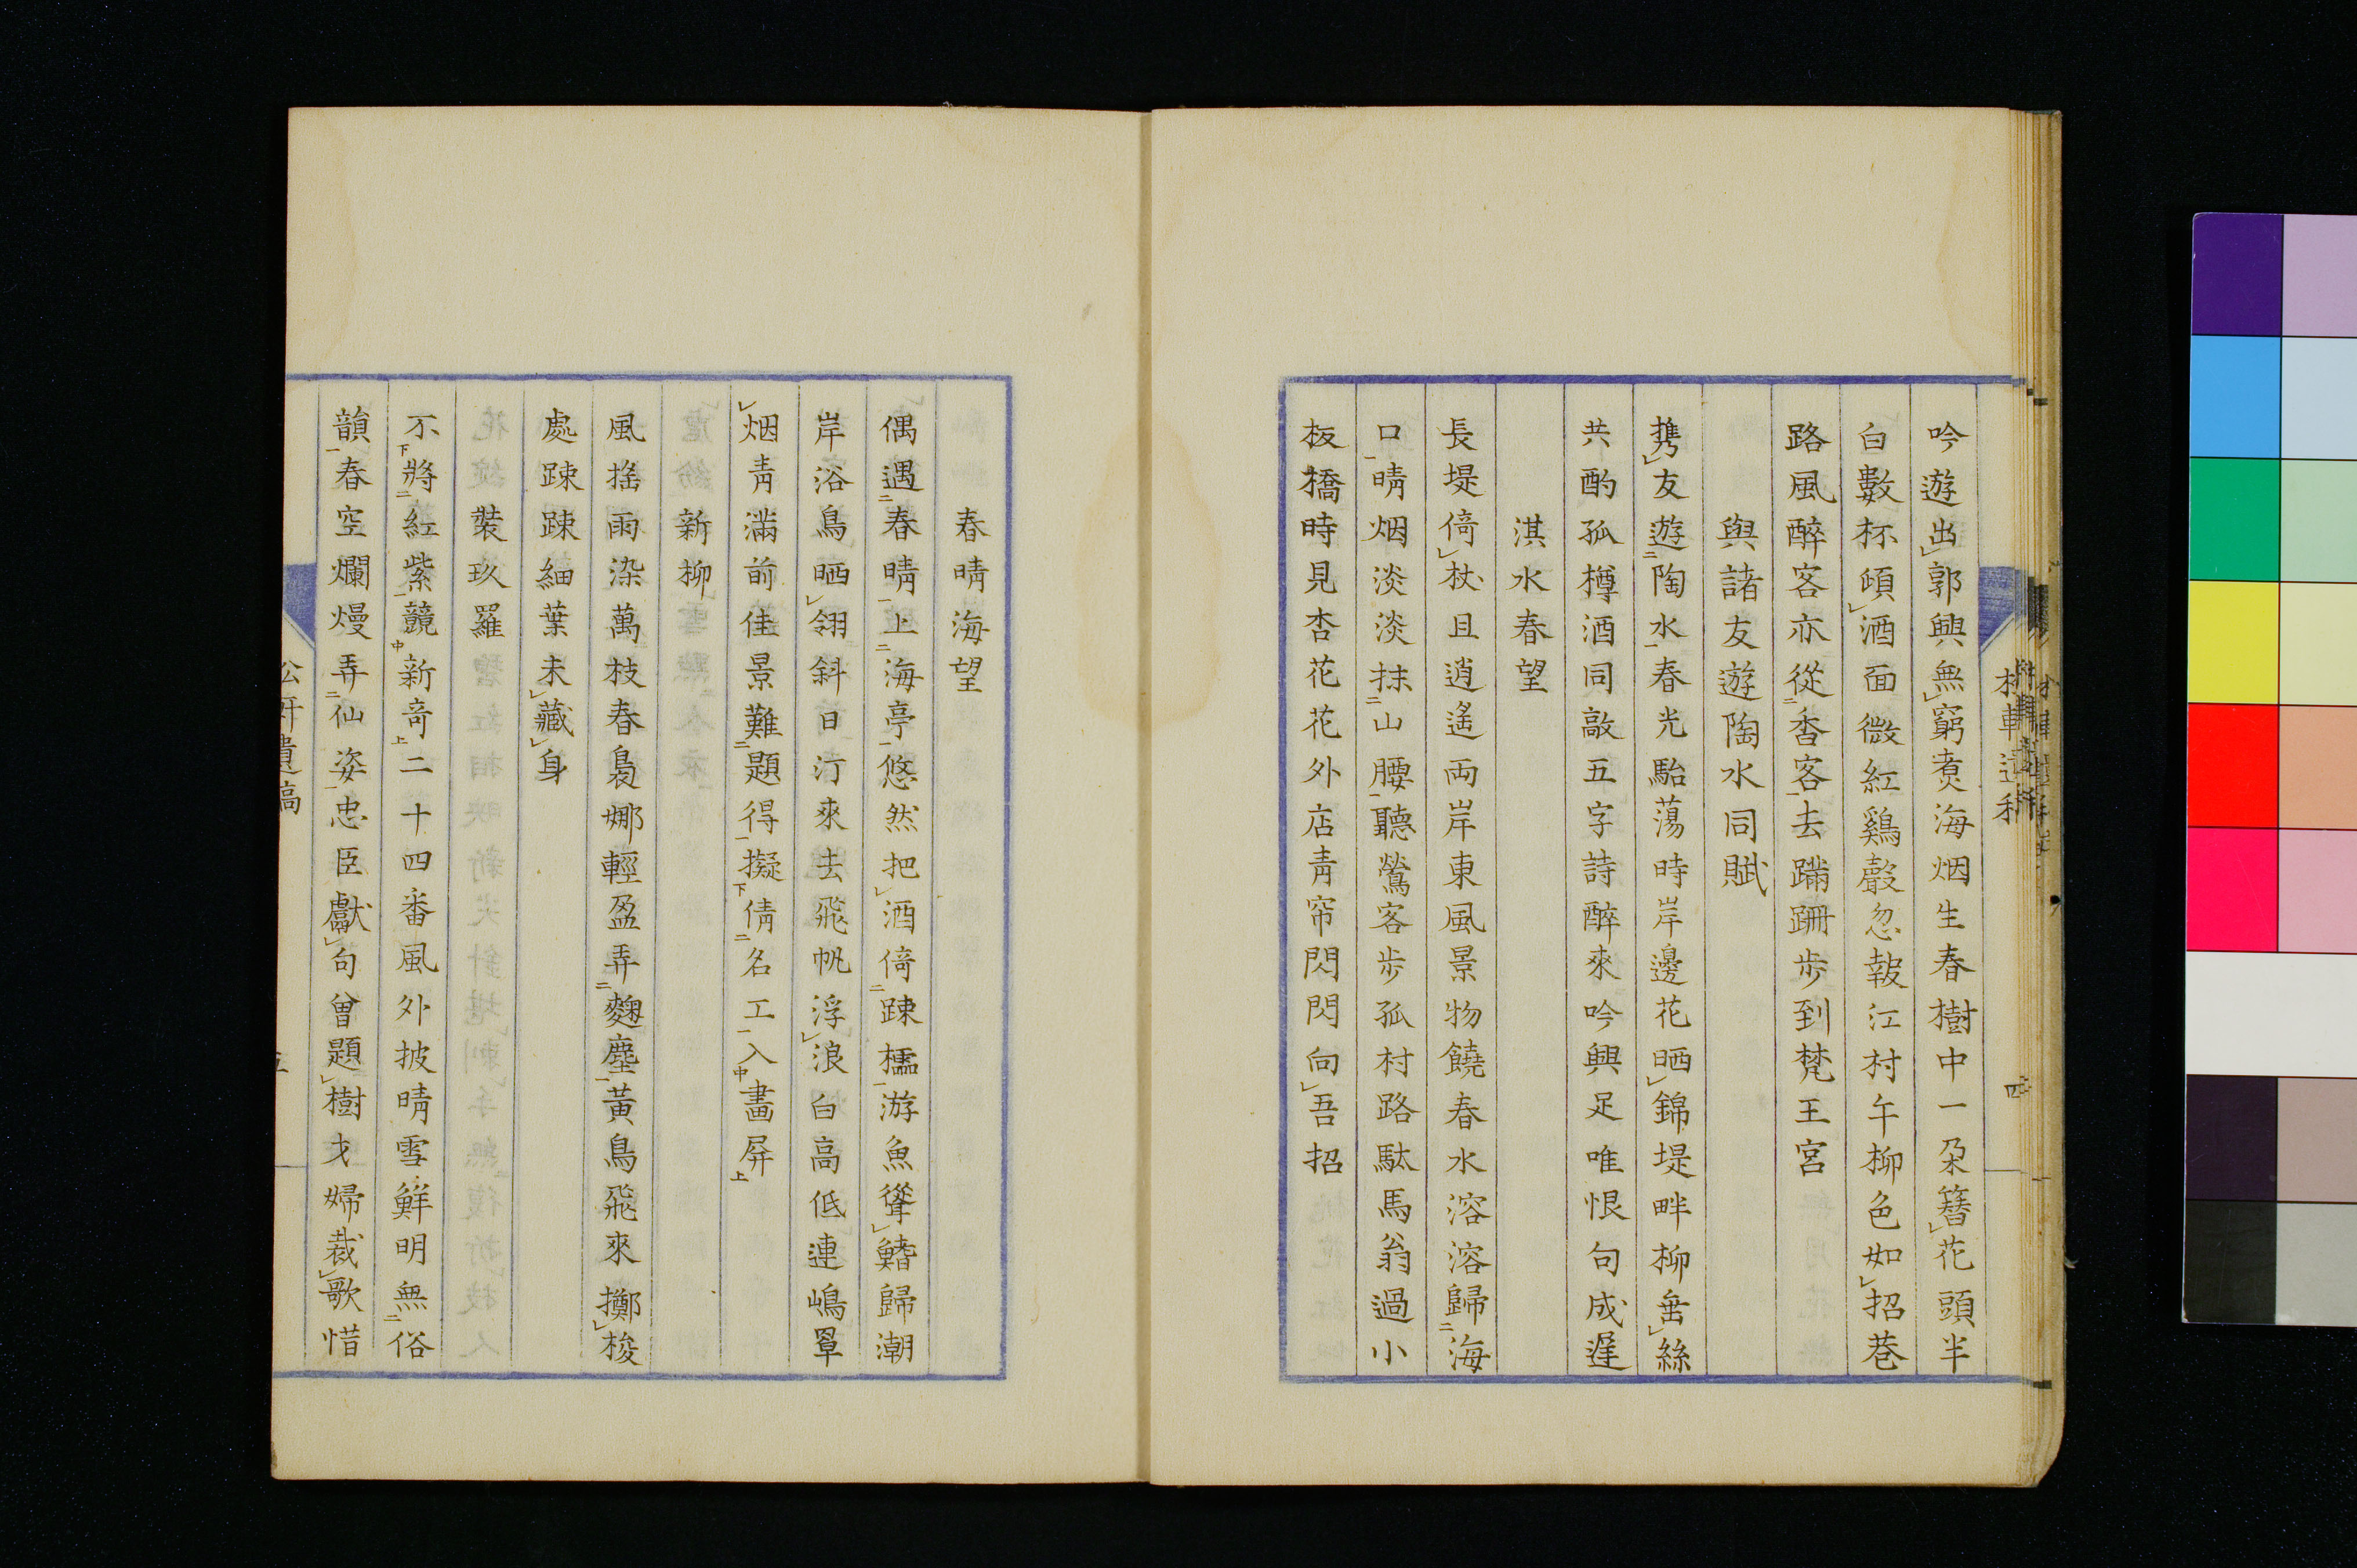 吟遊出郭興無窮煮海烟生春樹中一朶簪花頭半
白數杯傾酒面微紅鷄聲忽報江村午柳色如招巷
路風醉客亦從香客去蹣跚歩到梵王宮
與諸友遊陶水同賦
携友遊陶水春光駘蕩時岸邊花晒錦堤畔柳垂絲
共酌孤樽酒同敲五字詩醉來吟興足唯恨句成遲
淇水春望
長堤倚杖且逍遙両岸東風景物饒春水溶溶歸海
口晴烟淡淡抹山腰聽鶯客歩孤村路駄馬翁過小
板橋時見杏花花外店青帘閃閃向吾招
春晴海望
偶遇春晴上海亭悠然把酒倚踈櫺游魚聳鰭歸潮
岸浴鳥晒翎斜日汀來去飛帆浮浪白高低連嶋罩
烟青滿前佳景難題得擬倩名工入畫屏
新柳
風揺雨染萬枝春裊娜輕盈弄麴塵黃鳥飛來擲梭
處踈踈細葉未藏身
裝玖羅
不將紅紫競新奇二十四番風外披晴雪鮮明無俗
韻春空爛熳弄仙姿忠臣獻句曾題樹才婦裁歌惜
五